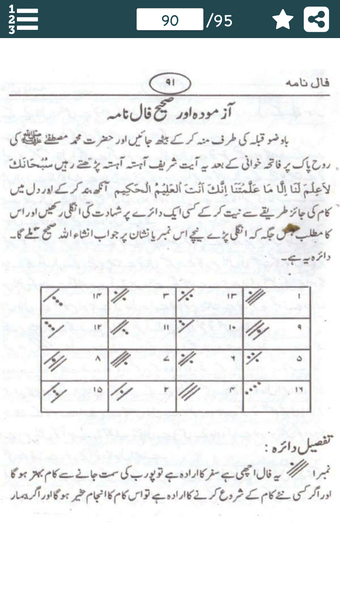 1
2
3
90 /95
فال نامہ
۹۱
آزمودہ اور صحیح فال نامہ
باوضو قبلہ کی طرف منہ کر کے بیٹھ جائیں اور حضرت محمد مصطفےٰ ﷺ کی
روح پاک پر فاتحہ خوانی کے بعد یہ آیت شریف آہستہ آہستہ پڑھتے رہیں سُبْحَانَکَ
لَاعِلْمَ لَنَا اِلَّا مَا عَلَّمْتَنَا اِنَّکَ اَنْتَ الْعَلِیْمُ الْحَکِیْم آنکھ بند کر کے اور دل میں
کام کی جائز طریقے سے نیت کر کے کسی ایک دائرے پر شہادت کی انگلی رکھیں اور اس
کا مطلب جس جگہ کہ انگلی پڑے نیچے اس نمبر یا نشان پر جواب انشاء اللہ صحیح ملے گا۔
دائرہ یہ ہے۔
۱ ۱۳ ۳ ۱۴
۹ ۱۰ ۱۱ ۱۲
۵ ۶ ۷ ۸
۱۶ ۴ ۲ ۱۵
تفصیل دائرہ :
نمبر۱ یہ فال اچھی ہے سفر کا ارادہ ہے تو پورب کی سمت جانے سے کام بہتر ہو گا
اور اگر کسی نئے کام کے شروع کرنے کا ارادہ ہے تو اس کام کا انجام خیر ہو گا اور اگر بیمار